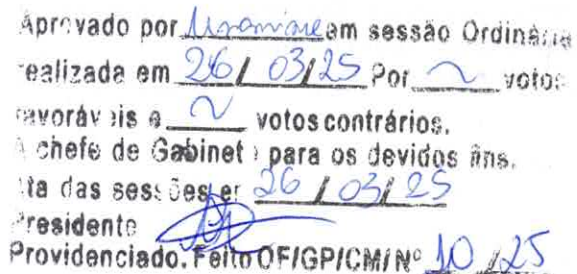 Aprovado por Unanime em sessão Ordinária
realizada em 26 / 03 / 25 Por ~ votos
favoráveis e ~ votos contrários.
A chefe de Gabinete para os devidos fins.
Ata das sessões er 26 / 03 / 25
Presidente
Providenciado. Feito OF/GP/CM/Nº 10 / 25